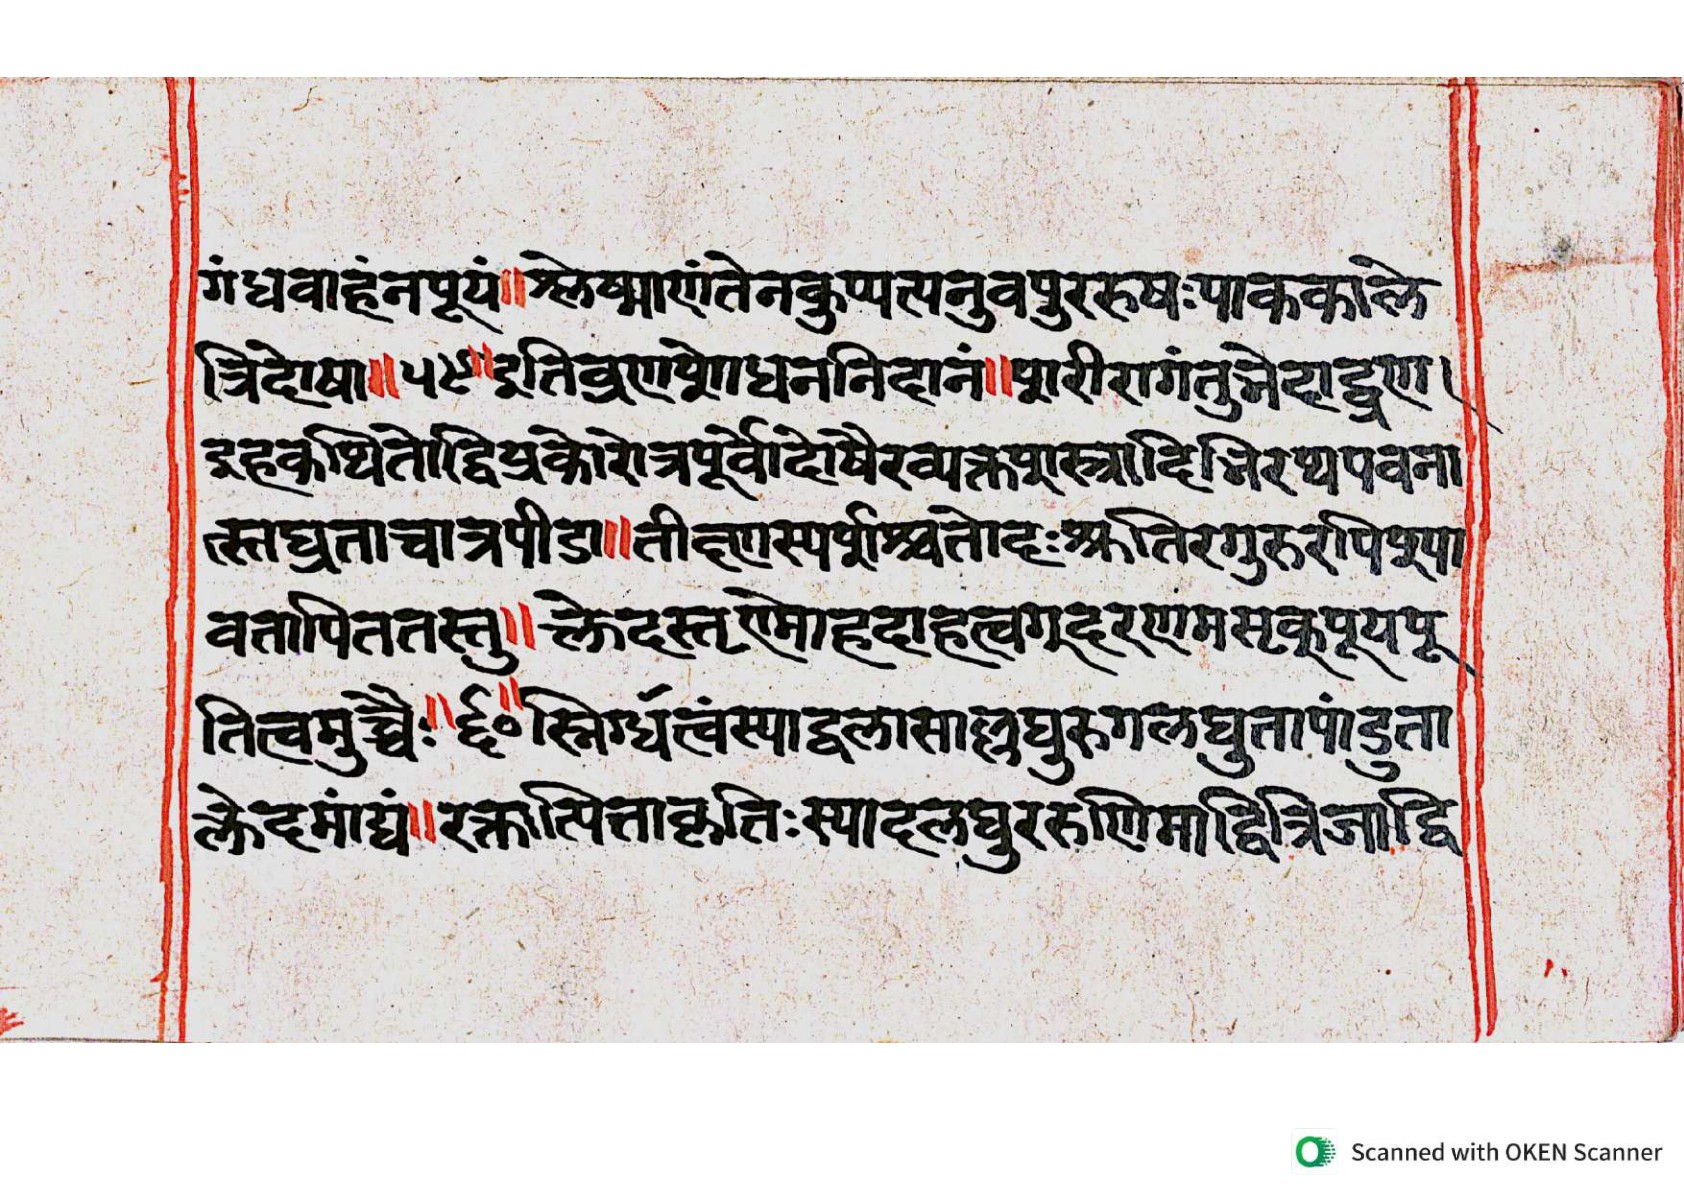 गंधवाहंनपूयं॥श्लेष्माणंतेनकुप्यत्यनुवपुररुषःपाककाले
त्रिदोषा॥५९॥इतिव्रणशोधननिदानं॥शारीरागंतुभेदाद्व्रण।
इहकथितोद्विप्रकारोत्रपूर्वोदोषैरव्यक्तशस्त्रादिभिरथपवना
त्स्तध्रताचात्रपीडा॥तीक्ष्णस्पर्शश्चतोदःस्रुतिरगुरुरपिश्या
वतापिततस्तु॥क्लेदस्तृण्मोहदाहत्वगुदरणमसृक्पूयपू
तित्वमुच्चैः॥६०॥स्निर्ग्धत्वंस्याद्वलासाल्लघुरुगलघुतापांडुता
क्लेदमांद्यं॥रक्तात्पित्ताकृतिःस्यादलघुररुणिमाद्वित्रिजाद्वि
Scanned with OKEN Scanner